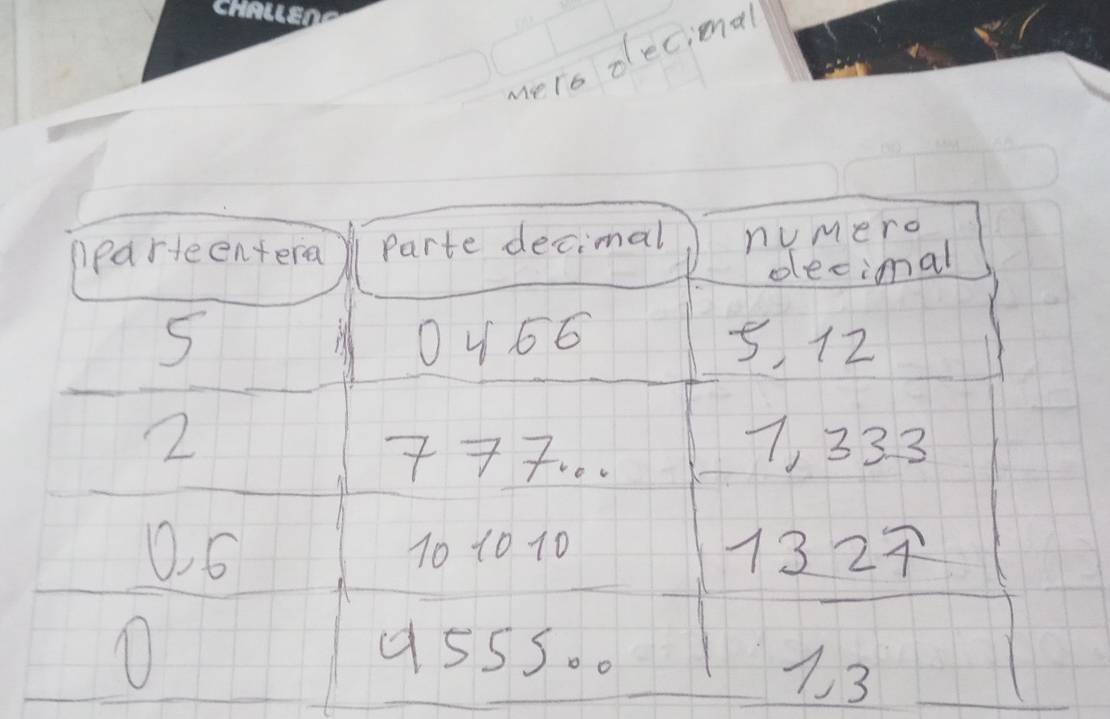 CHALLEN
mero decimal
parte entera parte decimal numero
decimal
5 0466 5,12
2 777... 1,333
0,6 101010 1327
0 9555.. 1,3